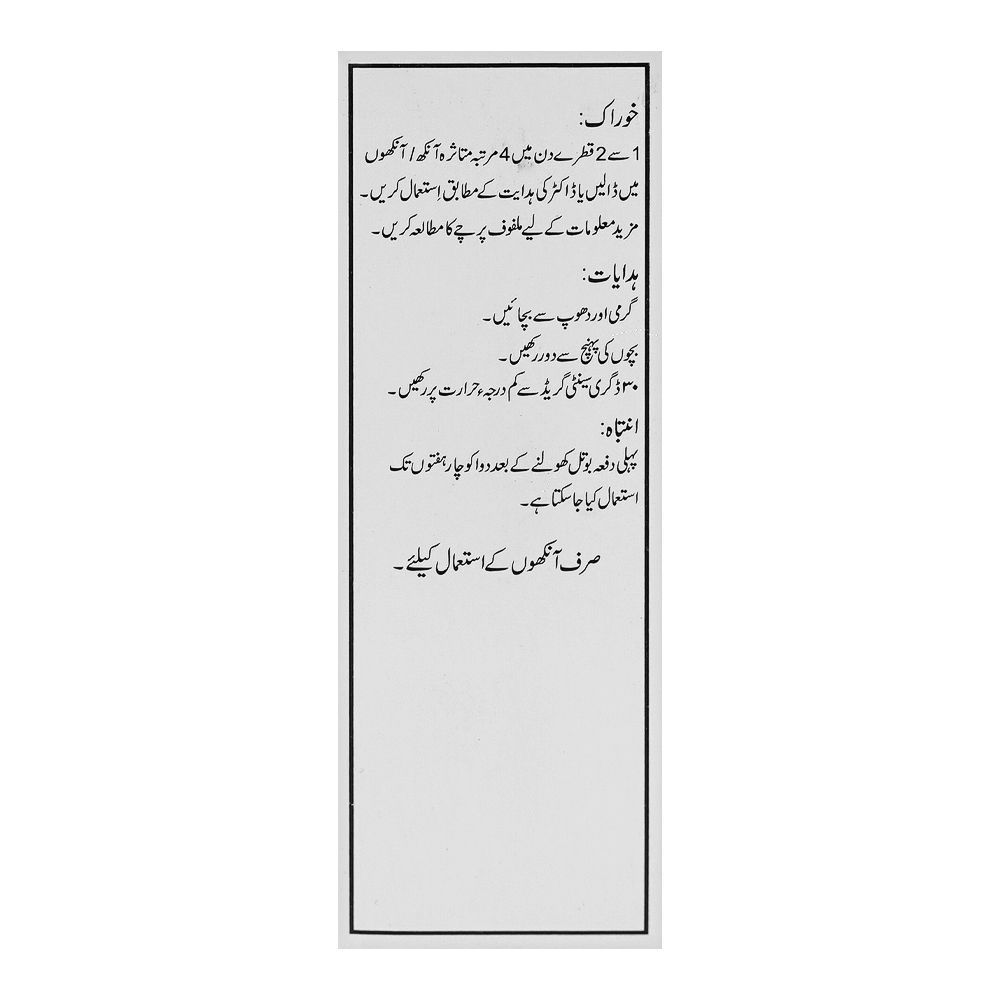 خوراک:
1 سے 2 قطرے دن میں 4 مرتبہ متاثرہ آنکھ / آنکھوں
میں ڈالیں یا ڈاکٹر کی ہدایت کے مطابق اِستعمال کریں۔
مزید معلومات کے لیے ملفوف پرچے کا مطالعہ کریں۔
ہدایات:
گرمی اور دھوپ سے بچائیں۔
بچوں کی پہنچ سے دور رکھیں۔
۳۰ ڈگری سینٹی گریڈ سے کم درجہء حرارت پر رکھیں۔
انتباہ:
پہلی دفعہ بوتل کھولنے کے بعد دوا کو چار ہفتوں تک
استعمال کیا جا سکتا ہے۔
صرف آنکھوں کے استعمال کیلئے۔